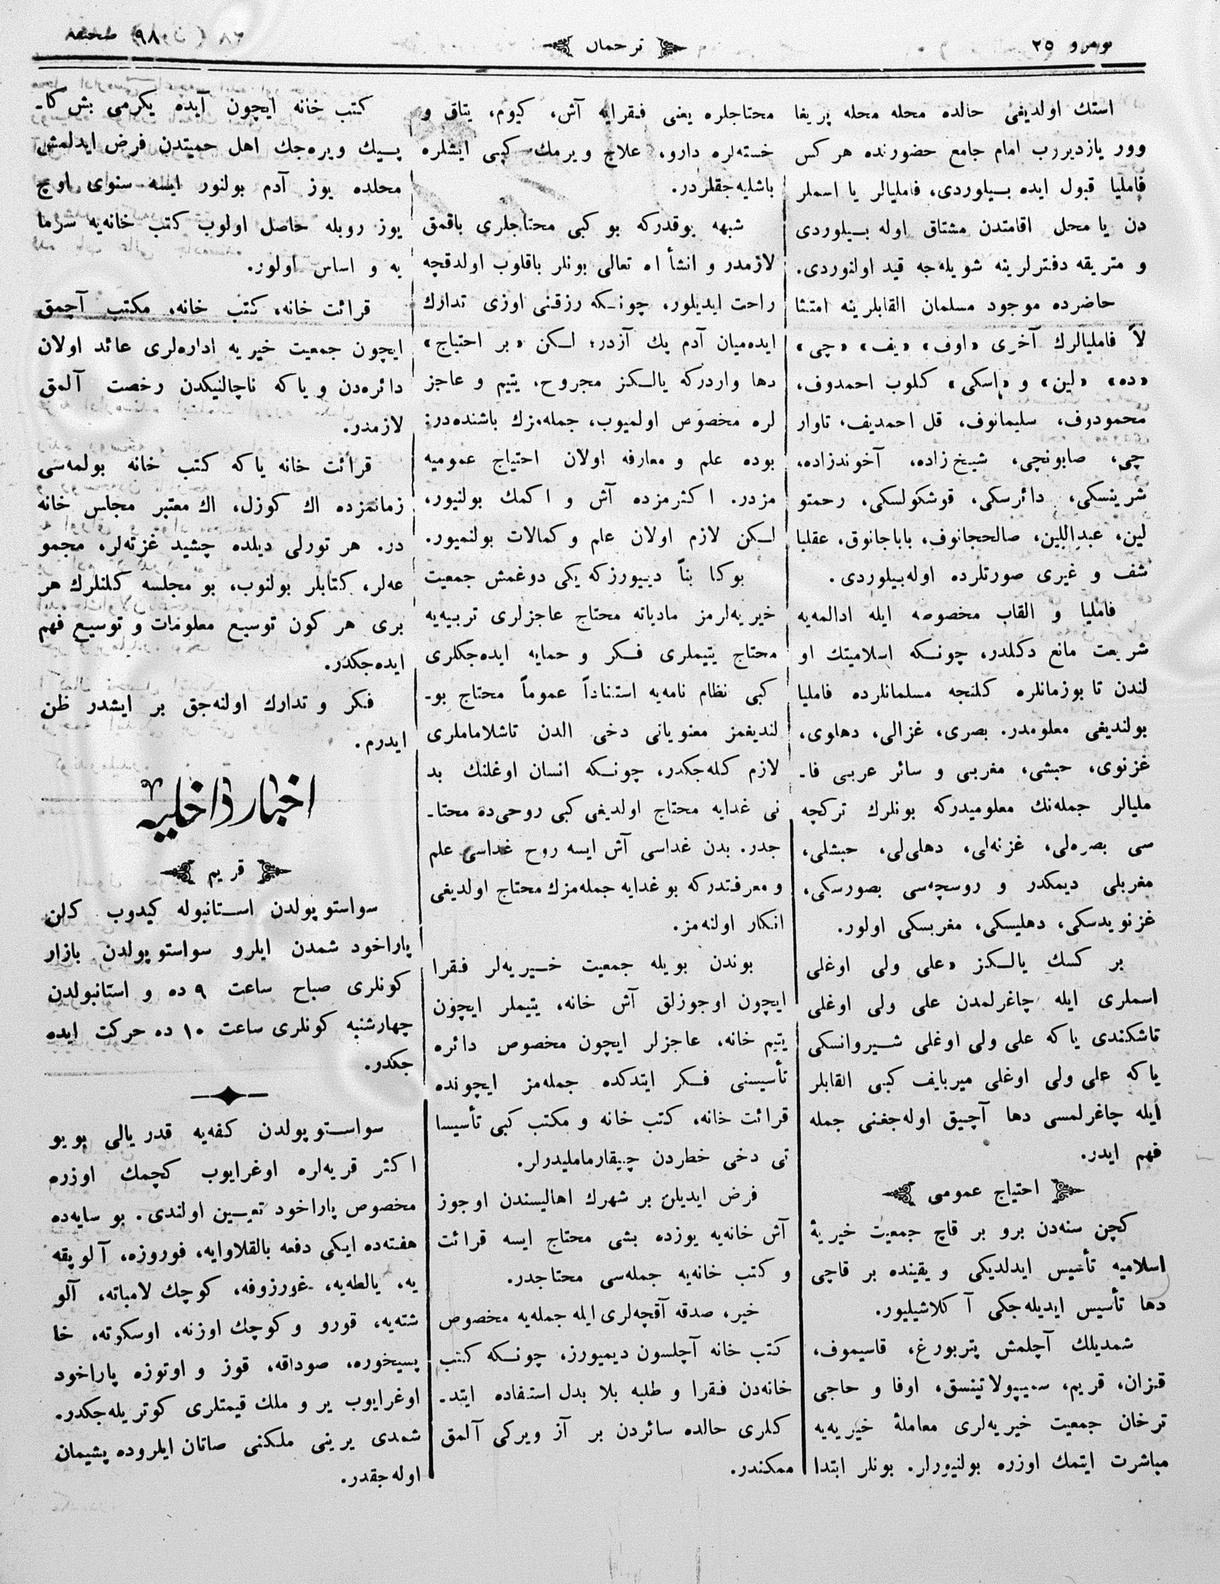 نومرو ٢٥
ترجمان
صحيفه ٩٨
استك اولديغى حالده محله محله پريغا
وور يازديررب امام جامع حضورنده هركس
فامليا قبول ايده بيلوردى، فامليالر يا اسملر
دن يا محل اقامتدن مشتاق اوله بيلوردى
و متريقه دفترلرينه شويله‌جه قيد اولنوردى.
حاضرده موجود مسلمان القابلرينه امتثا
لاً فامليالرك آخرى «اوف» «يف» «چى»
«ده» «لين» و «اسكى» كلوب احمدوف،
محمودوف، سليمانوف، قل احمديف، تاوار
چى، صابونچى، شيخ‌زاده، آخوندزاده،
شرينسكى، دائرسكى، قوشكولسكى، رحمتو
لين، عبداللين، صالحجانوف، باباجانوف، عقلبا
شف و غيرى صورتلرده اوله‌بيلوردى.
فامليا و القاب مخصوصه ايله ادالمه‌يه
شريعت مانع دكلدر، چونكه اسلاميتك او
لندن تا بوزمانلره كلنجه مسلمانلرده فامليا
بولنديغى معلومدر. بصرى، غزالى، دهلوى،
غزنوى، حبشى، مغربى و سائر عربى فا-
مليالر جمله‌نك معلوميدركه بونلرك تركچه
سى بصره‌لى، غزنه‌لى، دهلى‌لى، حبشلى،
مغربلى ديمكدر و روسچه‌سى بصورسكى،
غزنويدسكى، دهليسكى، مغربسكى اولور.
بر كسك يالكز «على ولى اوغلى
اسملرى ايله چاغرلمدن على ولى اوغلى
تاشكندى ياكه على ولى اوغلى شيروانسكى
ياكه على ولى اوغلى ميربايف كبى القابلر
ايله چاغرلمسى دها آچيق اوله‌جغنى جمله
فهم ايدر.
احتياج عمومى
كچن سنه‌دن برو بر قاچ جمعيت خيريهٔ
اسلاميه تأسيس ايدلديكى و يقينده بر قاچى
دها تأسيس ايديله‌جكى آكلاشيليور.
شمديلك آچلمش پتربورغ، قاسيموف،
قزان، قريم، سميپولاتينسق، اوفا و حاجى
ترخان جمعيت خيريه‌لرى معاملهٔ خيريه‌يه
مباشرت ايتمك اوزره بولنيورلر. بونلر ابتدا
محتاجلره يعنى فقرايه آش، كيوم، يتاق و
خسته‌لره دارو، علاج ويرمك كبى ايشلره
باشليه‌جقلردر.
شبهه بوقدركه بو كبى محتاجلرى باقمق
لازمدر و انشأ اه تعالى بونلر باقلوب اولدقچه
راحت ايديلور، چونكه رزقنى اوزى تدارك
ايده‌ميان آدم پك آزدر؛ لكن «بر احتياج»
دها واردركه يالكز مجروح، يتيم و عاجز
لره مخصوص اولميوب، جمله‌مزك باشنده‌در:
بوده علم و معارفه اولان احتياج عموميه
مزدر. اكثرمزده آش و اكمك بولنيور،
لكن لازم اولان علم و كمالات بولنميور.
بوكا بناً دييورزكه يكى دوغمش جمعيت
خيريه‌لرمز ماديانه محتاج عاجزلرى تربيه‌يه
محتاج يتيملرى فكر و حمايه ايده‌جكلرى
كبى نظام نامه‌يه استناداً عموماً محتاج بو-
لنديغمز معنويانى دخى الدن تاشلاماملرى
لازم كله‌جكدر، چونكه انسان اوغلنك بد
نى غدايه محتاج اولديغى كبى روحى‌ده محتا-
جدر. بدن غداسى آش ايسه روح غداسى علم
و معرفتدركه بو غدايه جمله‌مزك محتاج اولديغى
انكار اولنه‌مز.
بوندن بويله جمعيت خيريه‌لر فقرا
ايچون اوجوزلق آش خانه، يتيملر ايچون
يتيم خانه، عاجزلر ايچون مخصوص دائره
تأسيسنى فكر ايتدكده جمله‌مز ايچونده
قرائت خانه، كتب خانه و مكتب كبى تأسيسا
تى دخى خطردن چيقارمامليدرلر.
فرض ايديلن بر شهرك اهاليسندن اوجوز
آش خانه‌يه يوزده بشى محتاج ايسه قرائت
و كتب خانه‌يه جمله‌سى محتاجدر.
خير، صدقه آقچه‌لرى ايله جمله‌يه مخصوص
كتب خانه آچلسون ديميورز، چونكه كتب
خانه‌دن فقرا و طلبه بلا بدل استفاده ايتد-
كلرى حالده سائردن بر آز ويركى آلمق
ممكندر.
كتب خانه ايچون آيده يكرمى بش كا-
پيك ويره‌جك اهل حميتدن فرض ايدلمش
محلده يوز آدم بولنور ايسه سنوى اوچ
يوز روبله حاصل اولوب كتب خانه‌يه سرما
يه و اساس اولور.
قرائت خانه، كتب خانه، مكتب آچمق
ايچون جمعيت خيريه اداره‌لرى عائد اولان
دائره‌دن و ياكه ناچالنيكدن رخصت آلمق
لازمدر.
قرائت خانه ياكه كتب خانه بولمه‌سى
زمانمزده اك كوزل، اك معتبر مجلس خانه
در. هر تورلى ديلده چشيد غزته‌لر، مجمو
عه‌لر، كتابلر بولنوب، بو مجلسه كلنلرك هر
برى هر كون توسيع معلومات و توسيع فهم
ايده‌جكدر.
فكر و تدارك اولنه‌جق بر ايشدر ظن
ايدرم.
اخبار داخليه
قريم
سواستوپولدن استانبوله كيدوب كلن
پاراخود شمدن ايلرو سواستوپولدن بازار
كونلرى صباح ساعت ٩ ده و استانبولدن
چهارشنبه كونلرى ساعت ١٠ ده حركت ايده
جكدر.
سواستوپولدن كفه‌يه قدر يالى بويو
اكثر قريه‌لره اوغرايوب كچمك اوزره
مخصوص پاراخود تعيين اولندى. بو سايه‌ده
هفته‌ده ايكى دفعه بالقلاوايه، فوروزه، آلوپقه
يه، يالطه‌يه، غورزوفه، كوچك لامباته، آلو
شته‌يه، قورو و كوچك اوزنه، اوسكوته، خا
پسيخوره، صوداقه، قوز و اوتوزه پاراخود
اوغرايوب ير و ملك قيمتلرى كوتريله‌جكدر.
شمدى يرينى ملكنى صاتان ايلروده پشيمان
اوله‌جقدر.